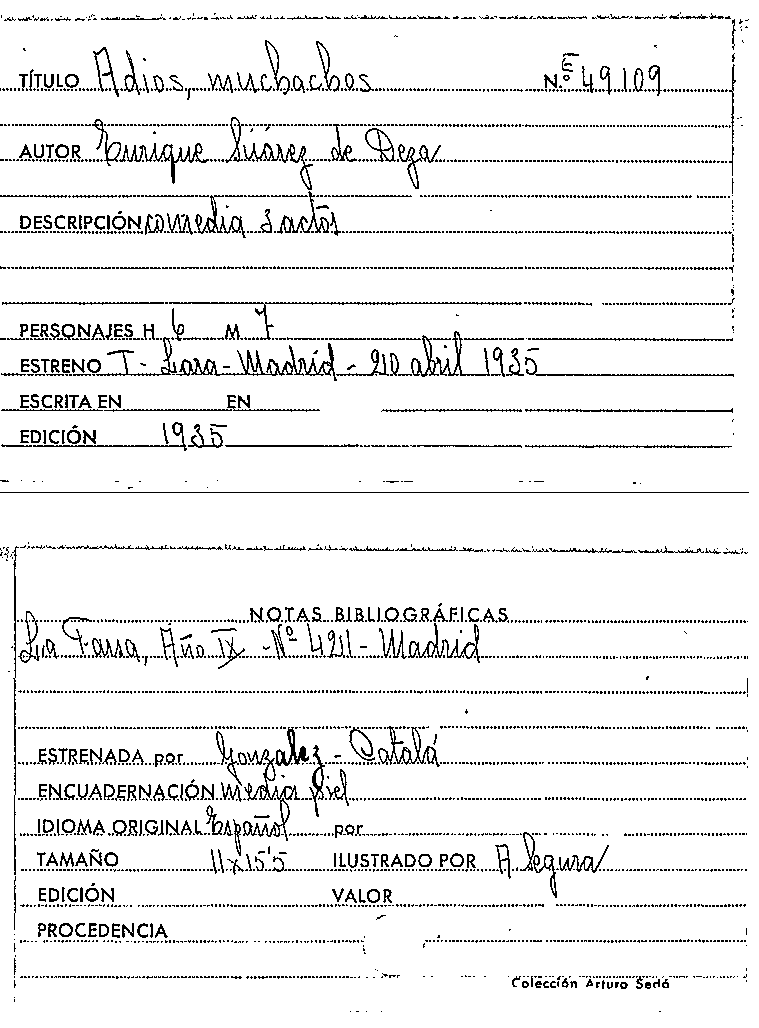 TÍTULO Adios, muchachos N.º E 49109
AUTOR Enrique Suárez de Deza
DESCRIPCIÓN comedia 3 actos
PERSONAJES H 6 M 7
ESTRENO T - Lara - Madrid - 20 abril 1935
ESCRITA EN EN
EDICIÓN 1935
NOTAS BIBLIOGRÁFICAS
La Farsa, Año IX - Nº 421 - Madrid
ESTRENADA por Gonzalez - Catalá
ENCUADERNACIÓN media piel
IDIOMA ORIGINAL Español por
TAMAÑO 11x15'5 ILUSTRADO POR A. Segura
EDICIÓN VALOR
PROCEDENCIA
Colección Arturo Sedó